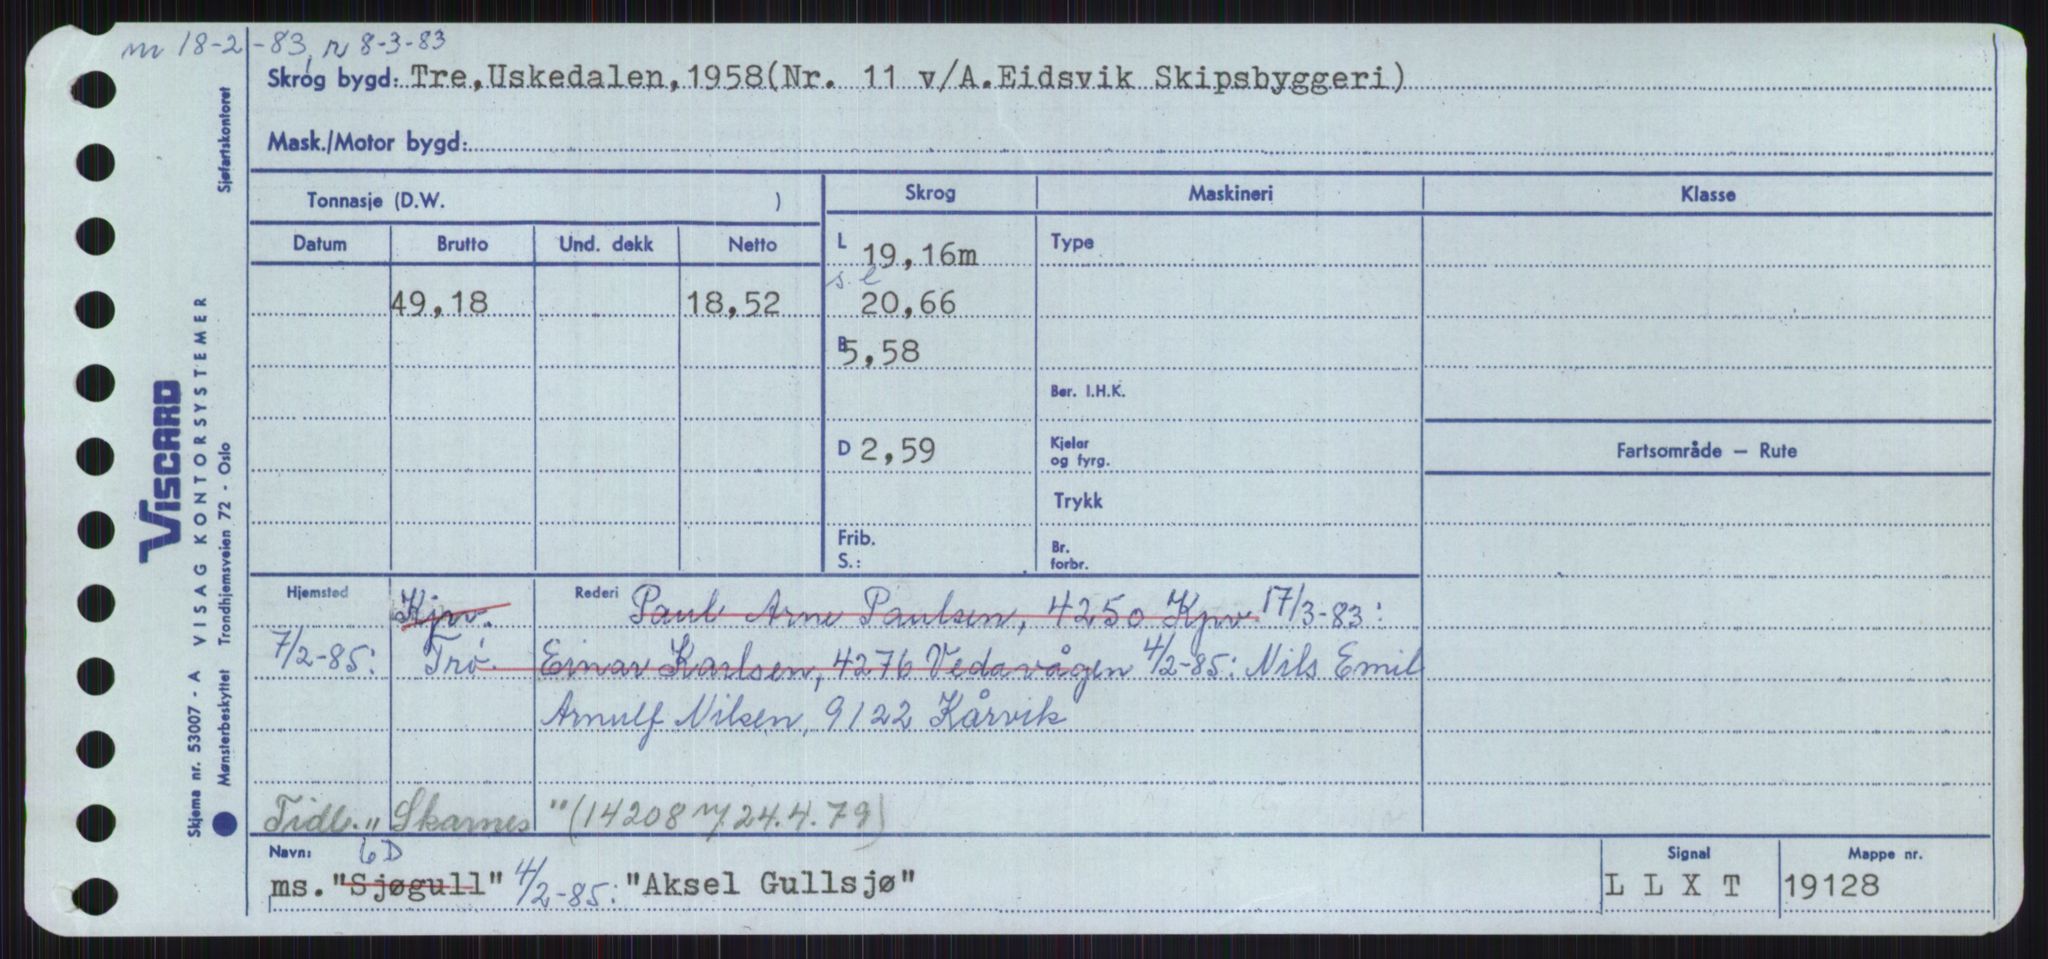 m 18-2-83, r 8-3-83
Skrog bygd: Tre,Uskedalen,1958(Nr. 11 v/A.Eidsvik Skipsbyggeri)
Mask./Motor bygd:
Tonnasje (D.W. )
Skrog
Maskineri
Klasse
Datum
Brutto
Und. dekk
Netto
L 19,16m
Type
s.l
49,18
18,52
20,66
B 5,58
Bør. I.H.K.
D 2,59
Kjelar
og fyrg.
Fartsområde — Rute
Trykk
Frib.
S.:
Br.
forbr.
Hjemsted
Kjpv.
Rederi
Paul Arne Paulsen, 4250 Kpv 17/3-83:
7/2-85: Trø. Einar Karlsen, 4276 Vedavågen 4/2-85: Nils Emil
Arnulf Nilsen, 9122 Kårvik
Tidl. "Skarnes" (14208 m/24.4.79)
Navn:
6D
Signal
Mappe nr.
ms."Sjøgull" 4/2-85: "Aksel Gullsjø"
L L X T
19128
Sjøfartskontoret
VISCARD
VISAG KONTORSYSTEMER
Skjema nr. 53007 - A
Mønsterbeskyttet Trondhjemsveien 72 - Oslo